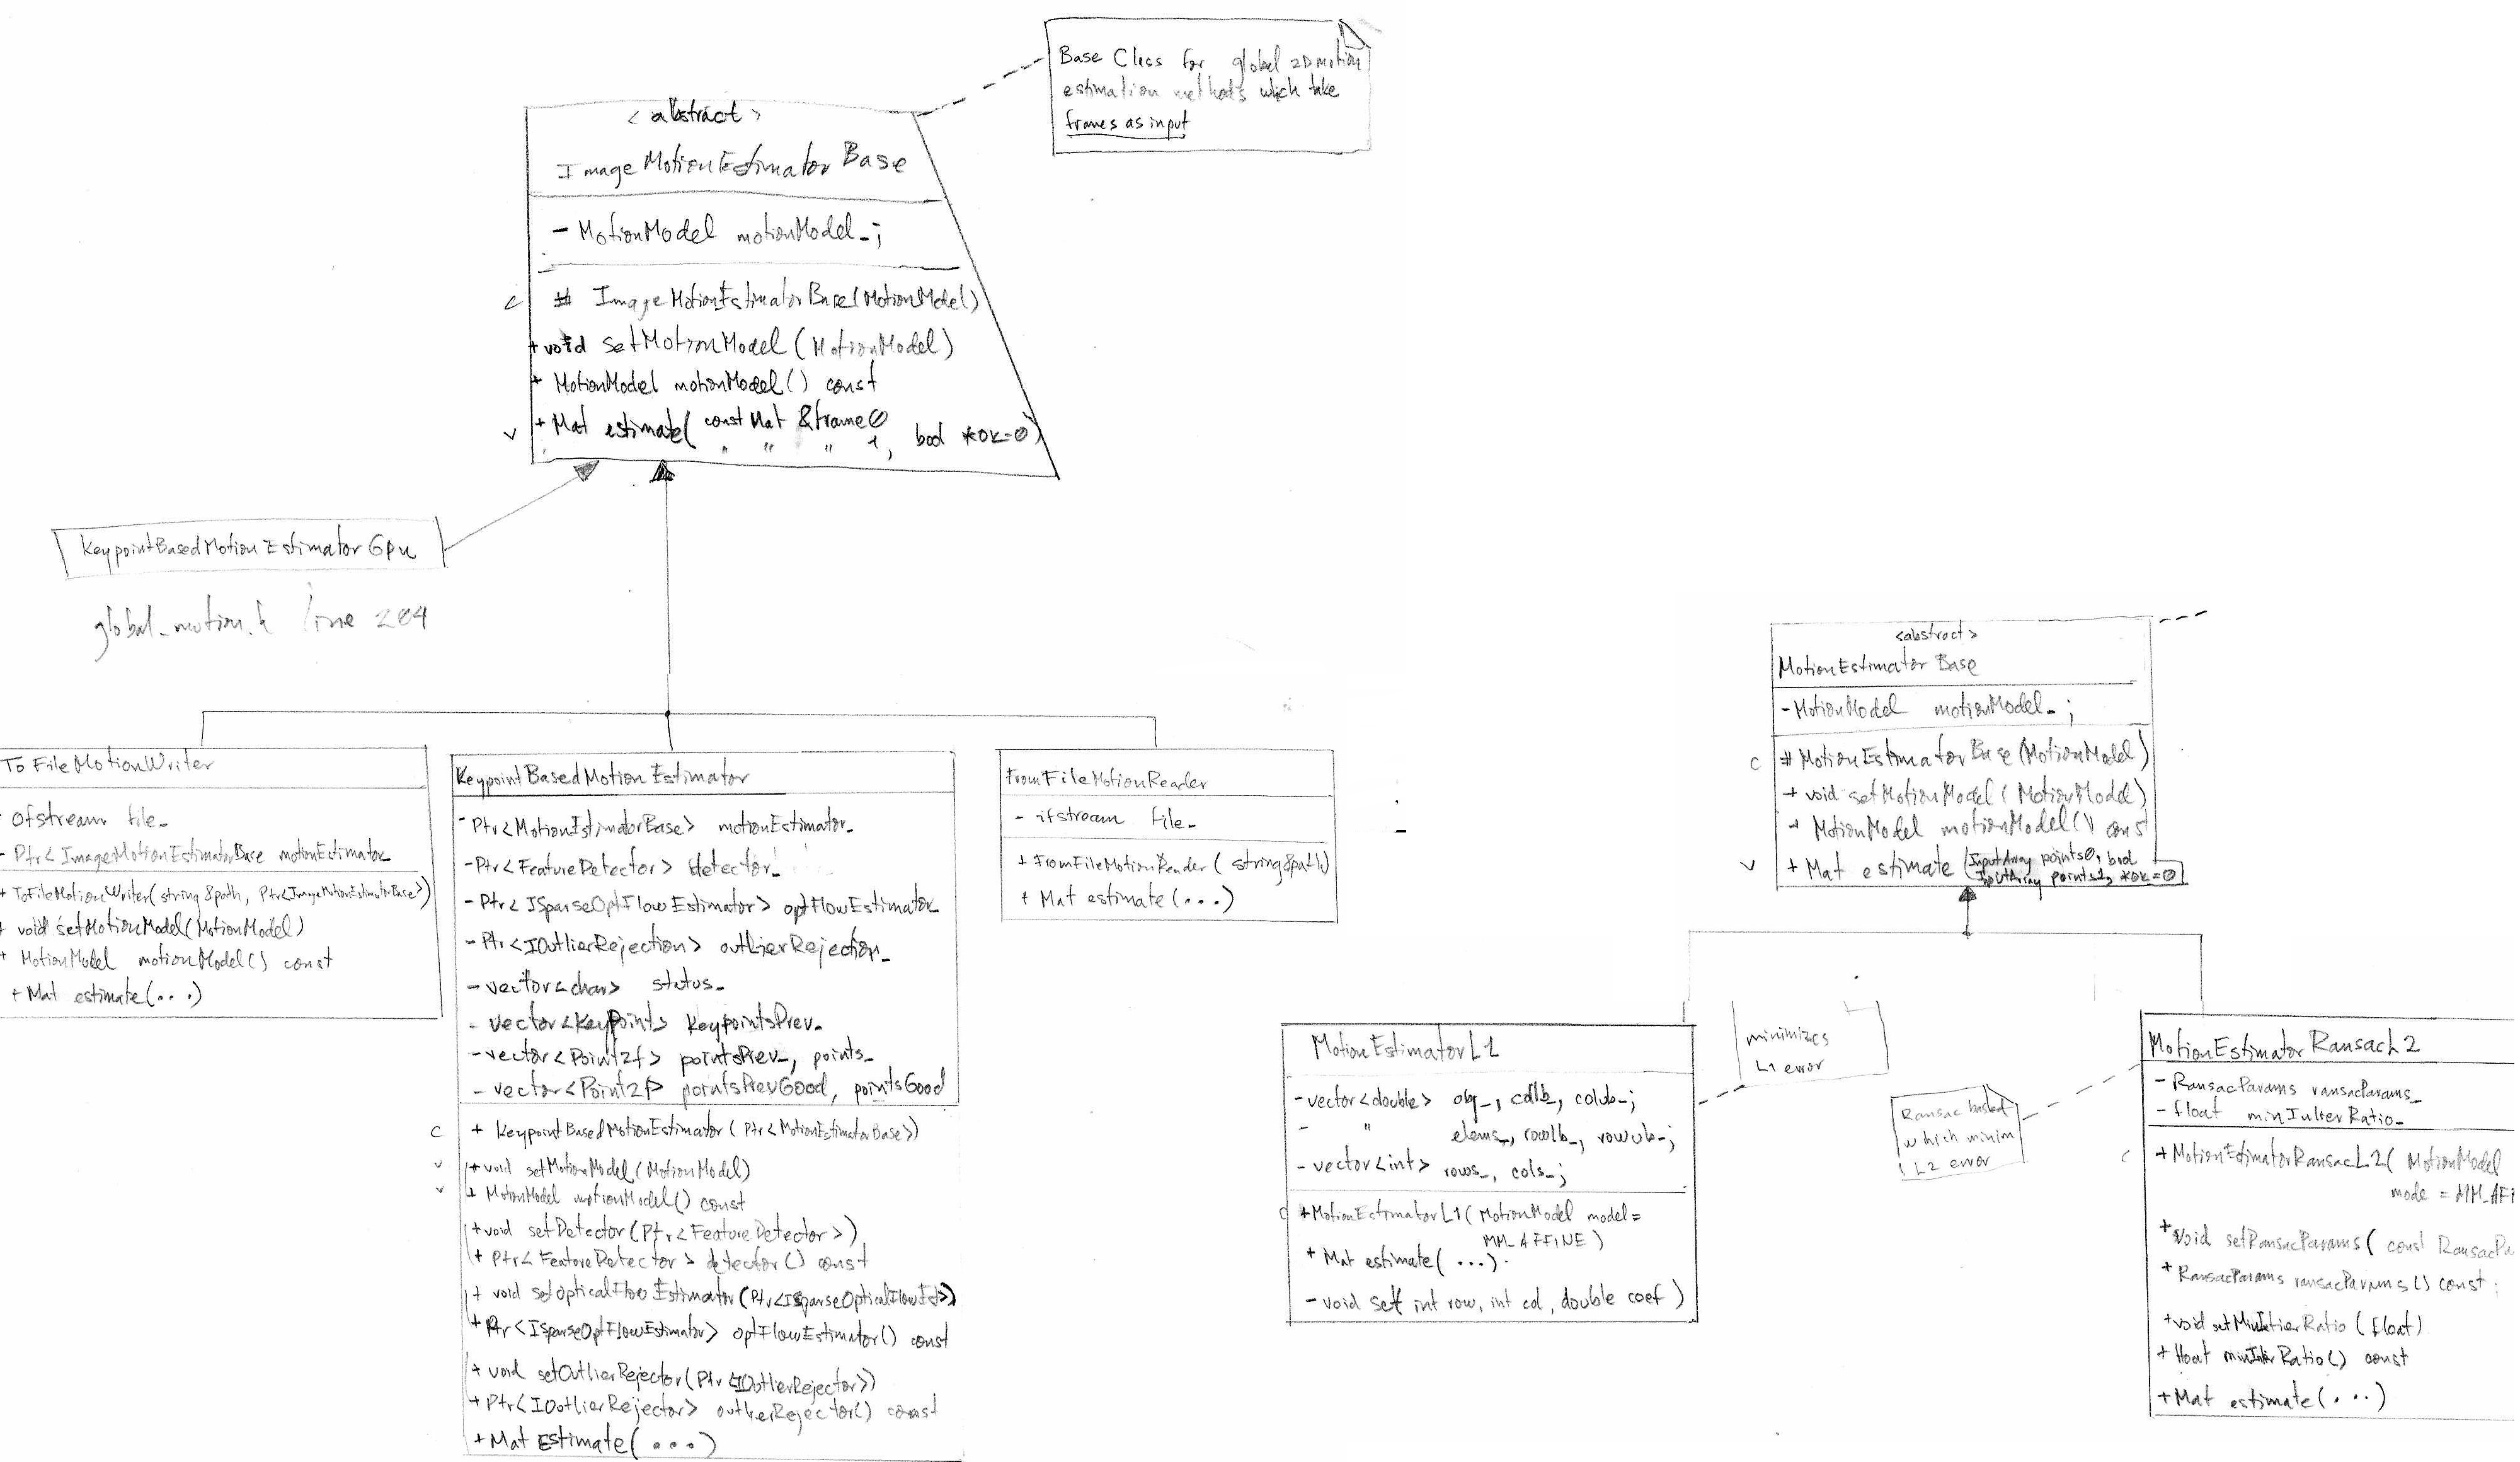 Base Class for global 2D motion
estimation methods which take
frames as input
< abstract >
ImageMotionEstimatorBase
- MotionModel motionModel_;
c # ImageMotionEstimatorBase(MotionModel)
+ void setMotionModel (MotionModel)
+ MotionModel motionModel() const
v + Mat estimate( const Mat &frame0
" " " 1, bool *ok=0)
KeypointBasedMotionEstimatorGpu
global_motion.h line 204
ToFileMotionWriter
- ofstream file_
- Ptr<ImageMotionEstimatorBase motionEstimator_
+ ToFileMotionWriter(string &path, Ptr<ImageMotionEstimatorBase>)
+ void setMotionModel(MotionModel)
+ MotionModel motionModel() const
+ Mat estimate(...)
KeypointBasedMotionEstimator
- Ptr<MotionEstimatorBase> motionEstimator_
- Ptr<FeatureDetector> detector_
- Ptr<ISparseOptFlowEstimator> optFlowEstimator_
- Ptr<IOutlierRejection> outlierRejection_
- vector<char> status_
- vector<KeyPoint> keypointsPrev_
- vector<Point2f> pointsPrev_, points_
- vector<Point2f> pointsPrevGood, pointsGood
c + KeypointBasedMotionEstimator(Ptr<MotionEstimatorBase>)
v + void setMotionModel(MotionModel)
v + MotionModel motionModel() const
+ void setDetector(Ptr<FeatureDetector>)
+ Ptr<FeatureDetector> detector() const
+ void setOpticalFlowEstimator(Ptr<ISparseOpticalFlowEst>)
+ Ptr<ISparseOptFlowEstimator> optFlowEstimator() const
+ void setOutlierRejector(Ptr<IOutlierRejector>)
+ Ptr<IOutlierRejector> outlierRejector() const
+ Mat Estimate(...)
FromFileMotionReader
- ifstream file_
+ FromFileMotionReader(string &path)
+ Mat estimate(...)
<abstract>
MotionEstimatorBase
- MotionModel motionModel_;
c # MotionEstimatorBase(MotionModel)
+ void setMotionModel(MotionModel)
+ MotionModel motionModel() const
v + Mat estimate (InputArray points0, bool
InputArray points1, *ok=0)
MotionEstimatorL1
- vector<double> obj_, collb_, colub_;
- " elems_, rowlb_, rowub_;
- vector<int> rows_, cols_;
c + MotionEstimatorL1(MotionModel model=
MM_AFFINE)
+ Mat estimate(...)
- void set( int row, int col, double coef)
minimizes
L1 error
Ransac based
which minim
L2 error
MotionEstimatorRansacL2
- RansacParams ransacParams_
- float minInlierRatio_
c + MotionEstimatorRansacL2( MotionModel
mode = MM_AFI
+ void setRansacParams( const RansacPa
+ RansacParams ransacParams() const;
+ void setMinInlierRatio (float)
+ float minInlierRatio() const
+ Mat estimate(...)